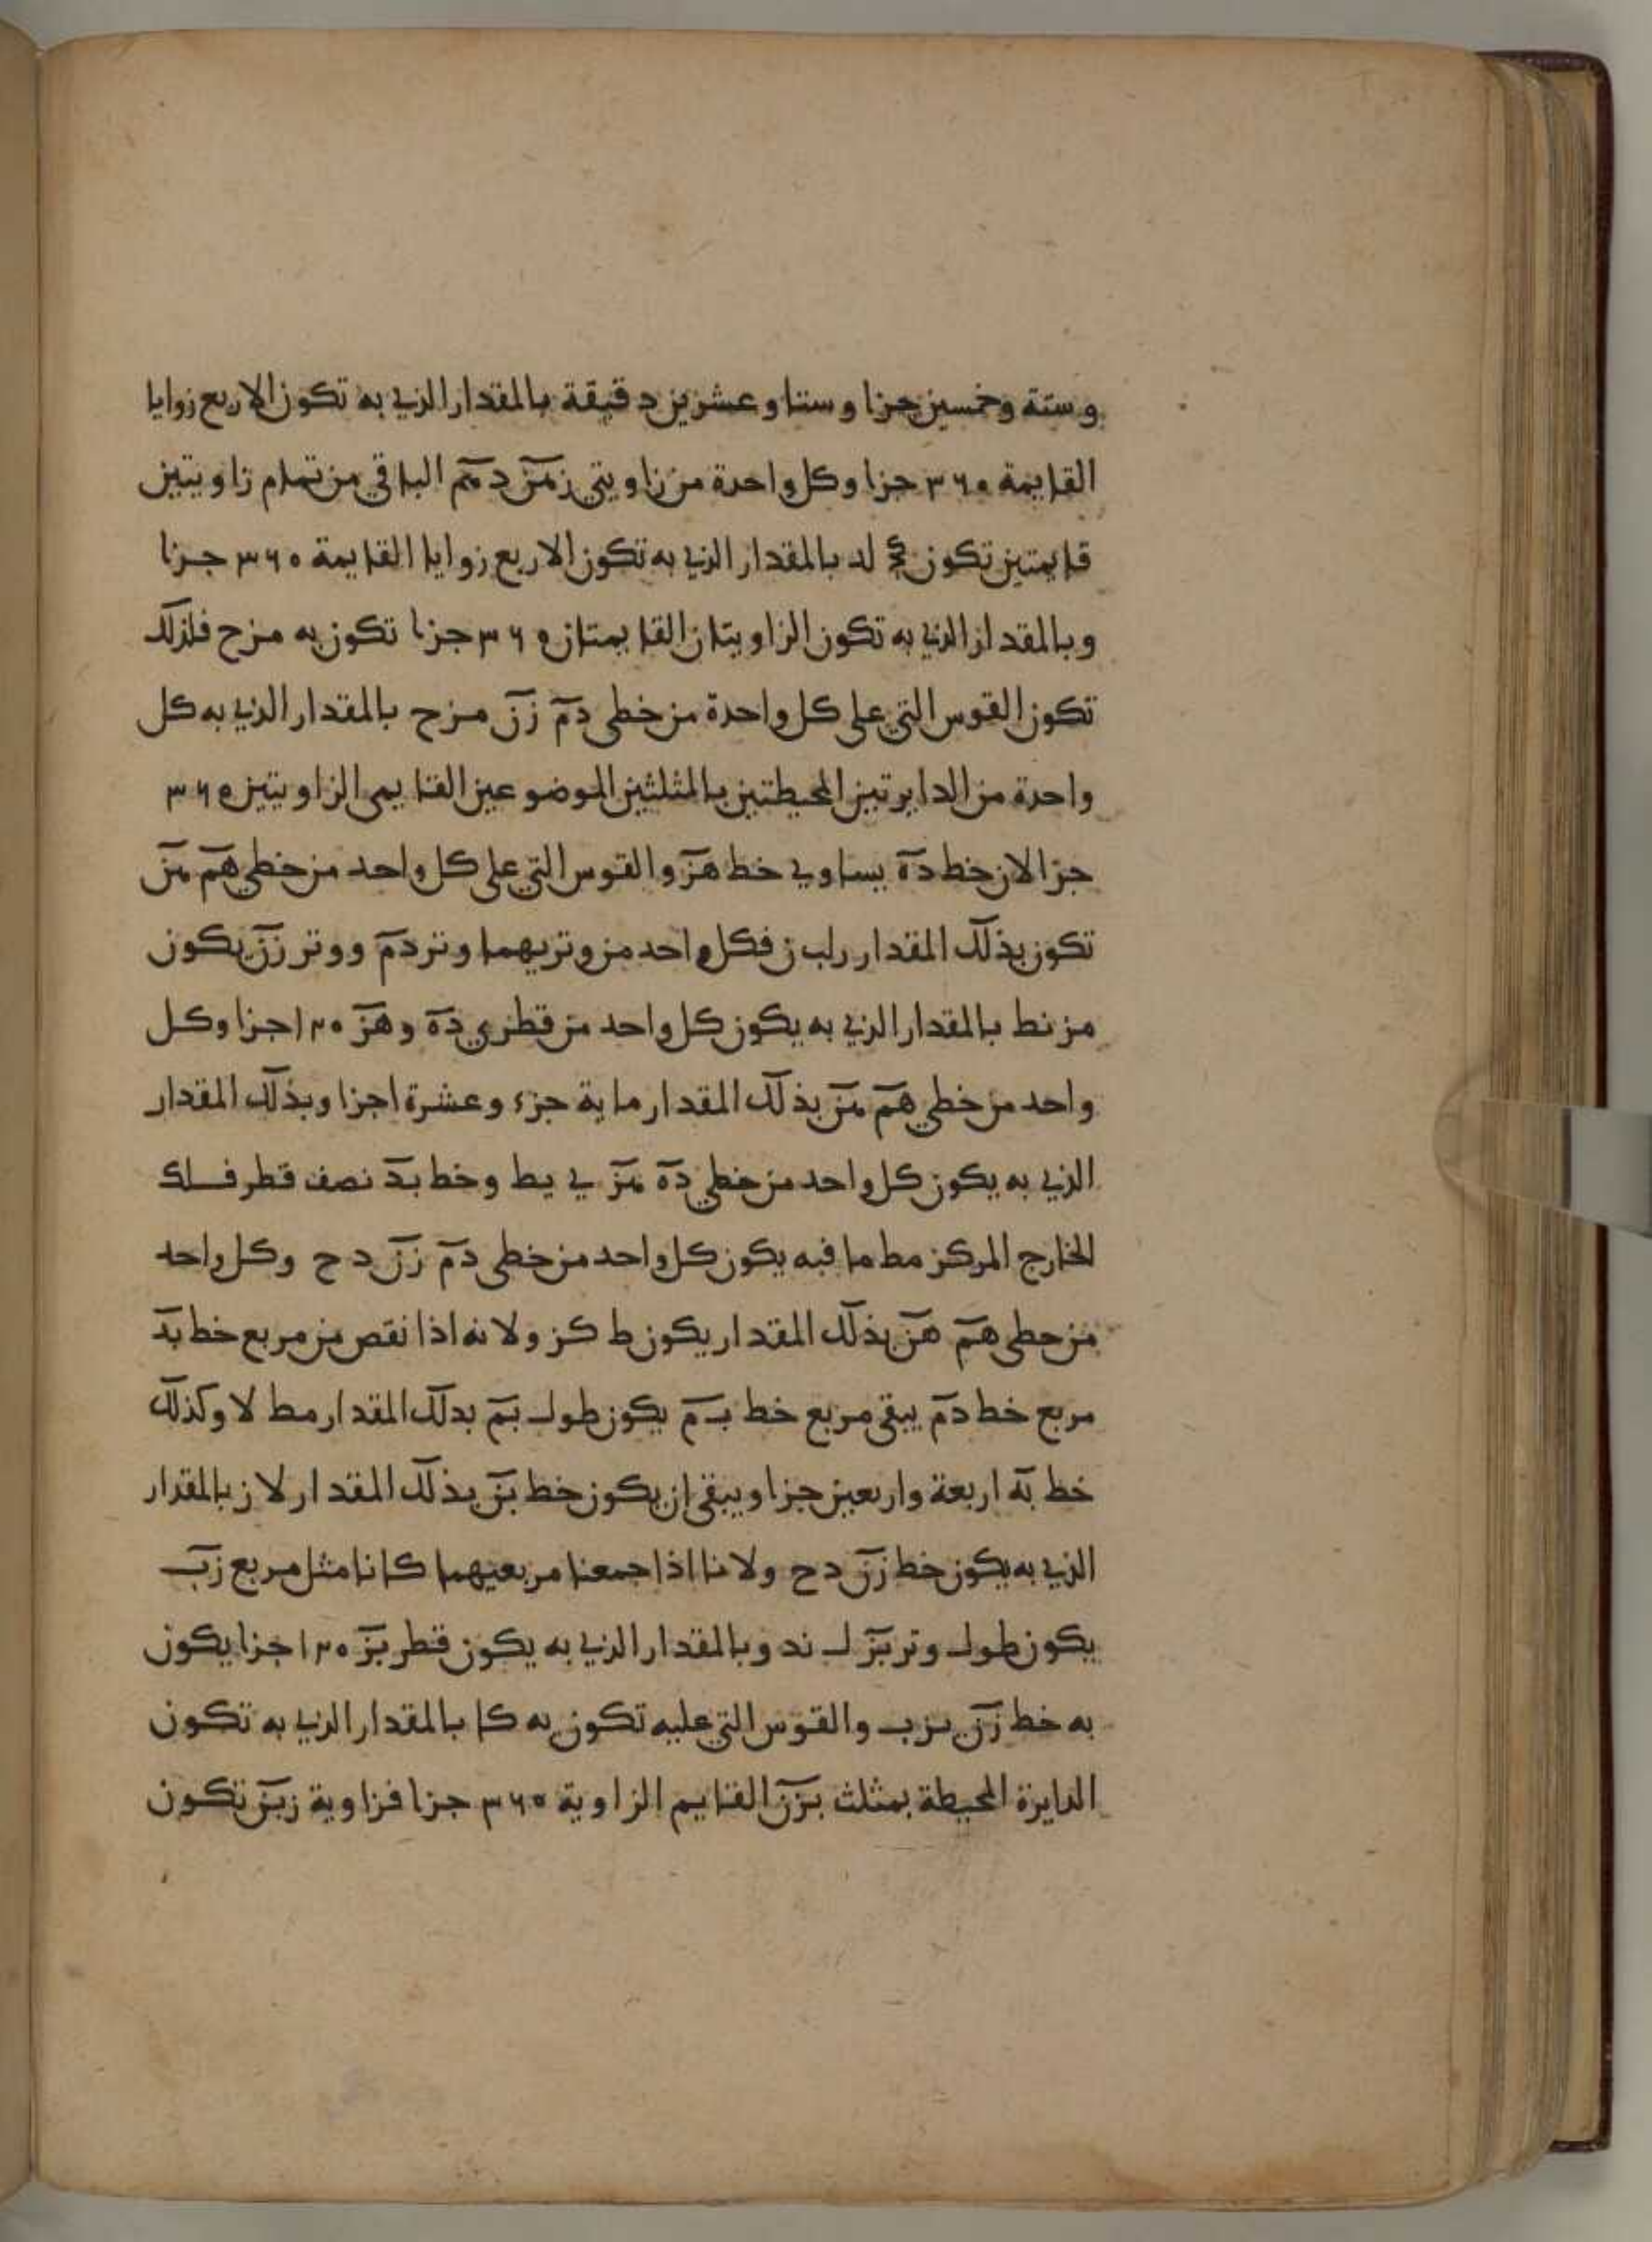 وستة وخمسين جزا وستا وعشرين دقيقة بالمقدار الذي به تكون الاربع زوايا
القايمة ٣٦٠ جزا وكل واحدة من زاويتي زمن دمم الباقي من تمام زاويتين
قايمتين تكون لد بالمقدار الذي به تكون الاربع زوايا القايمة ٣٦٠ جزا
وبالمقدار الذي به تكون الزاويتان القايمتان ٣٦٠ جزا تكون به مزح فلذلك
تكون القوس التي على كل واحدة من خطي دم زن مزح بالمقدار الذي به كل
واحدة من الدايرتين المحيطتين بالمثلثين الموضوعين القايمي الزاويتين ٣٦٠
جزا لان خط ده يساوي خط هز والقوس التي على كل واحد من خطي هم هن
تكون بذلك المقدار رلب ز فكل واحد من وتريهما وتر دم ووتر زن يكون
مز نط بالمقدار الذي به يكون كل واحد من قطري ده وهز ١٢٠ جزا وكل
واحد من خطي هم هن بذلك المقدار ماية جزء وعشرة اجزا وبذلك المقدار
الذي به يكون كل واحد من خطي ده هز ي يط وخط بد نصف قطر فلك
الخارج المركز مط ما فبه يكون كل واحد من خطي دم زن د ح وكل واحد
من خطي هم هن بذلك المقدار يكون ط كز ولانه اذا نقص من مربع خط بد
مربع خط دم يبقى مربع خط بم يكون طول بم بدلك المقدار مط لا وكذلك
خط به اربعة واربعين جزا ويبقى ان يكون خط بن بذلك المقدار لا ز بالمقدار
الذي به يكون خط زن د ح ولانا اذا جمعنا مربعيهما كانا مثل مربع زب
يكون طول وتر بز ل ند وبالمقدار الذي به يكون قطر بز ١٢٠ جزا يكون
به خط زن يز ب والقوس التي عليه تكون يه كا بالمقدار الذي به تكون
الدايرة المحيطة بمثلث بزن القايم الزاوية ٣٦٠ جزا فزاوية زبن تكون